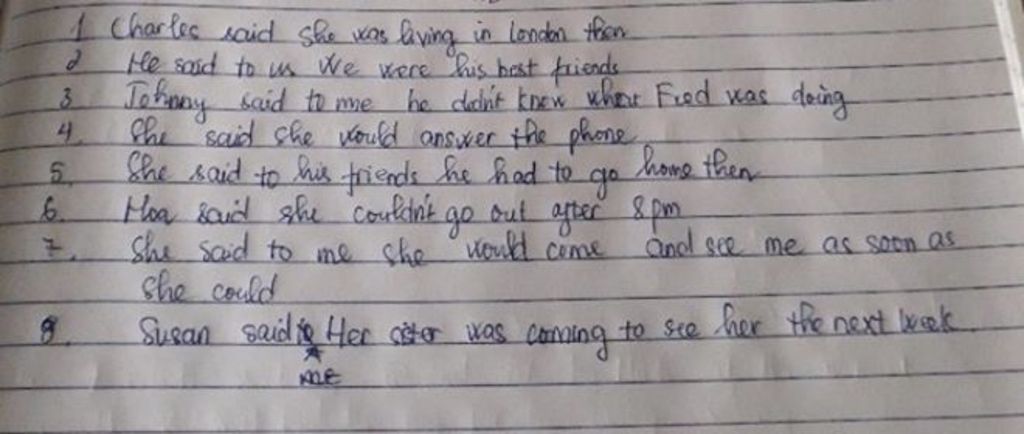 1 Charles said she was living in London then
2 He said to us We were his best friends
3 Johnny said to me he didn't know what Fred was doing
4. She said she would answer the phone
5. She said to his friends he had to go home then
6. Hoa said she couldn't go out after 8 pm
7. She said to me she would come and see me as soon as
she could
8. Susan said to Her sister was coming to see her the next week.
me